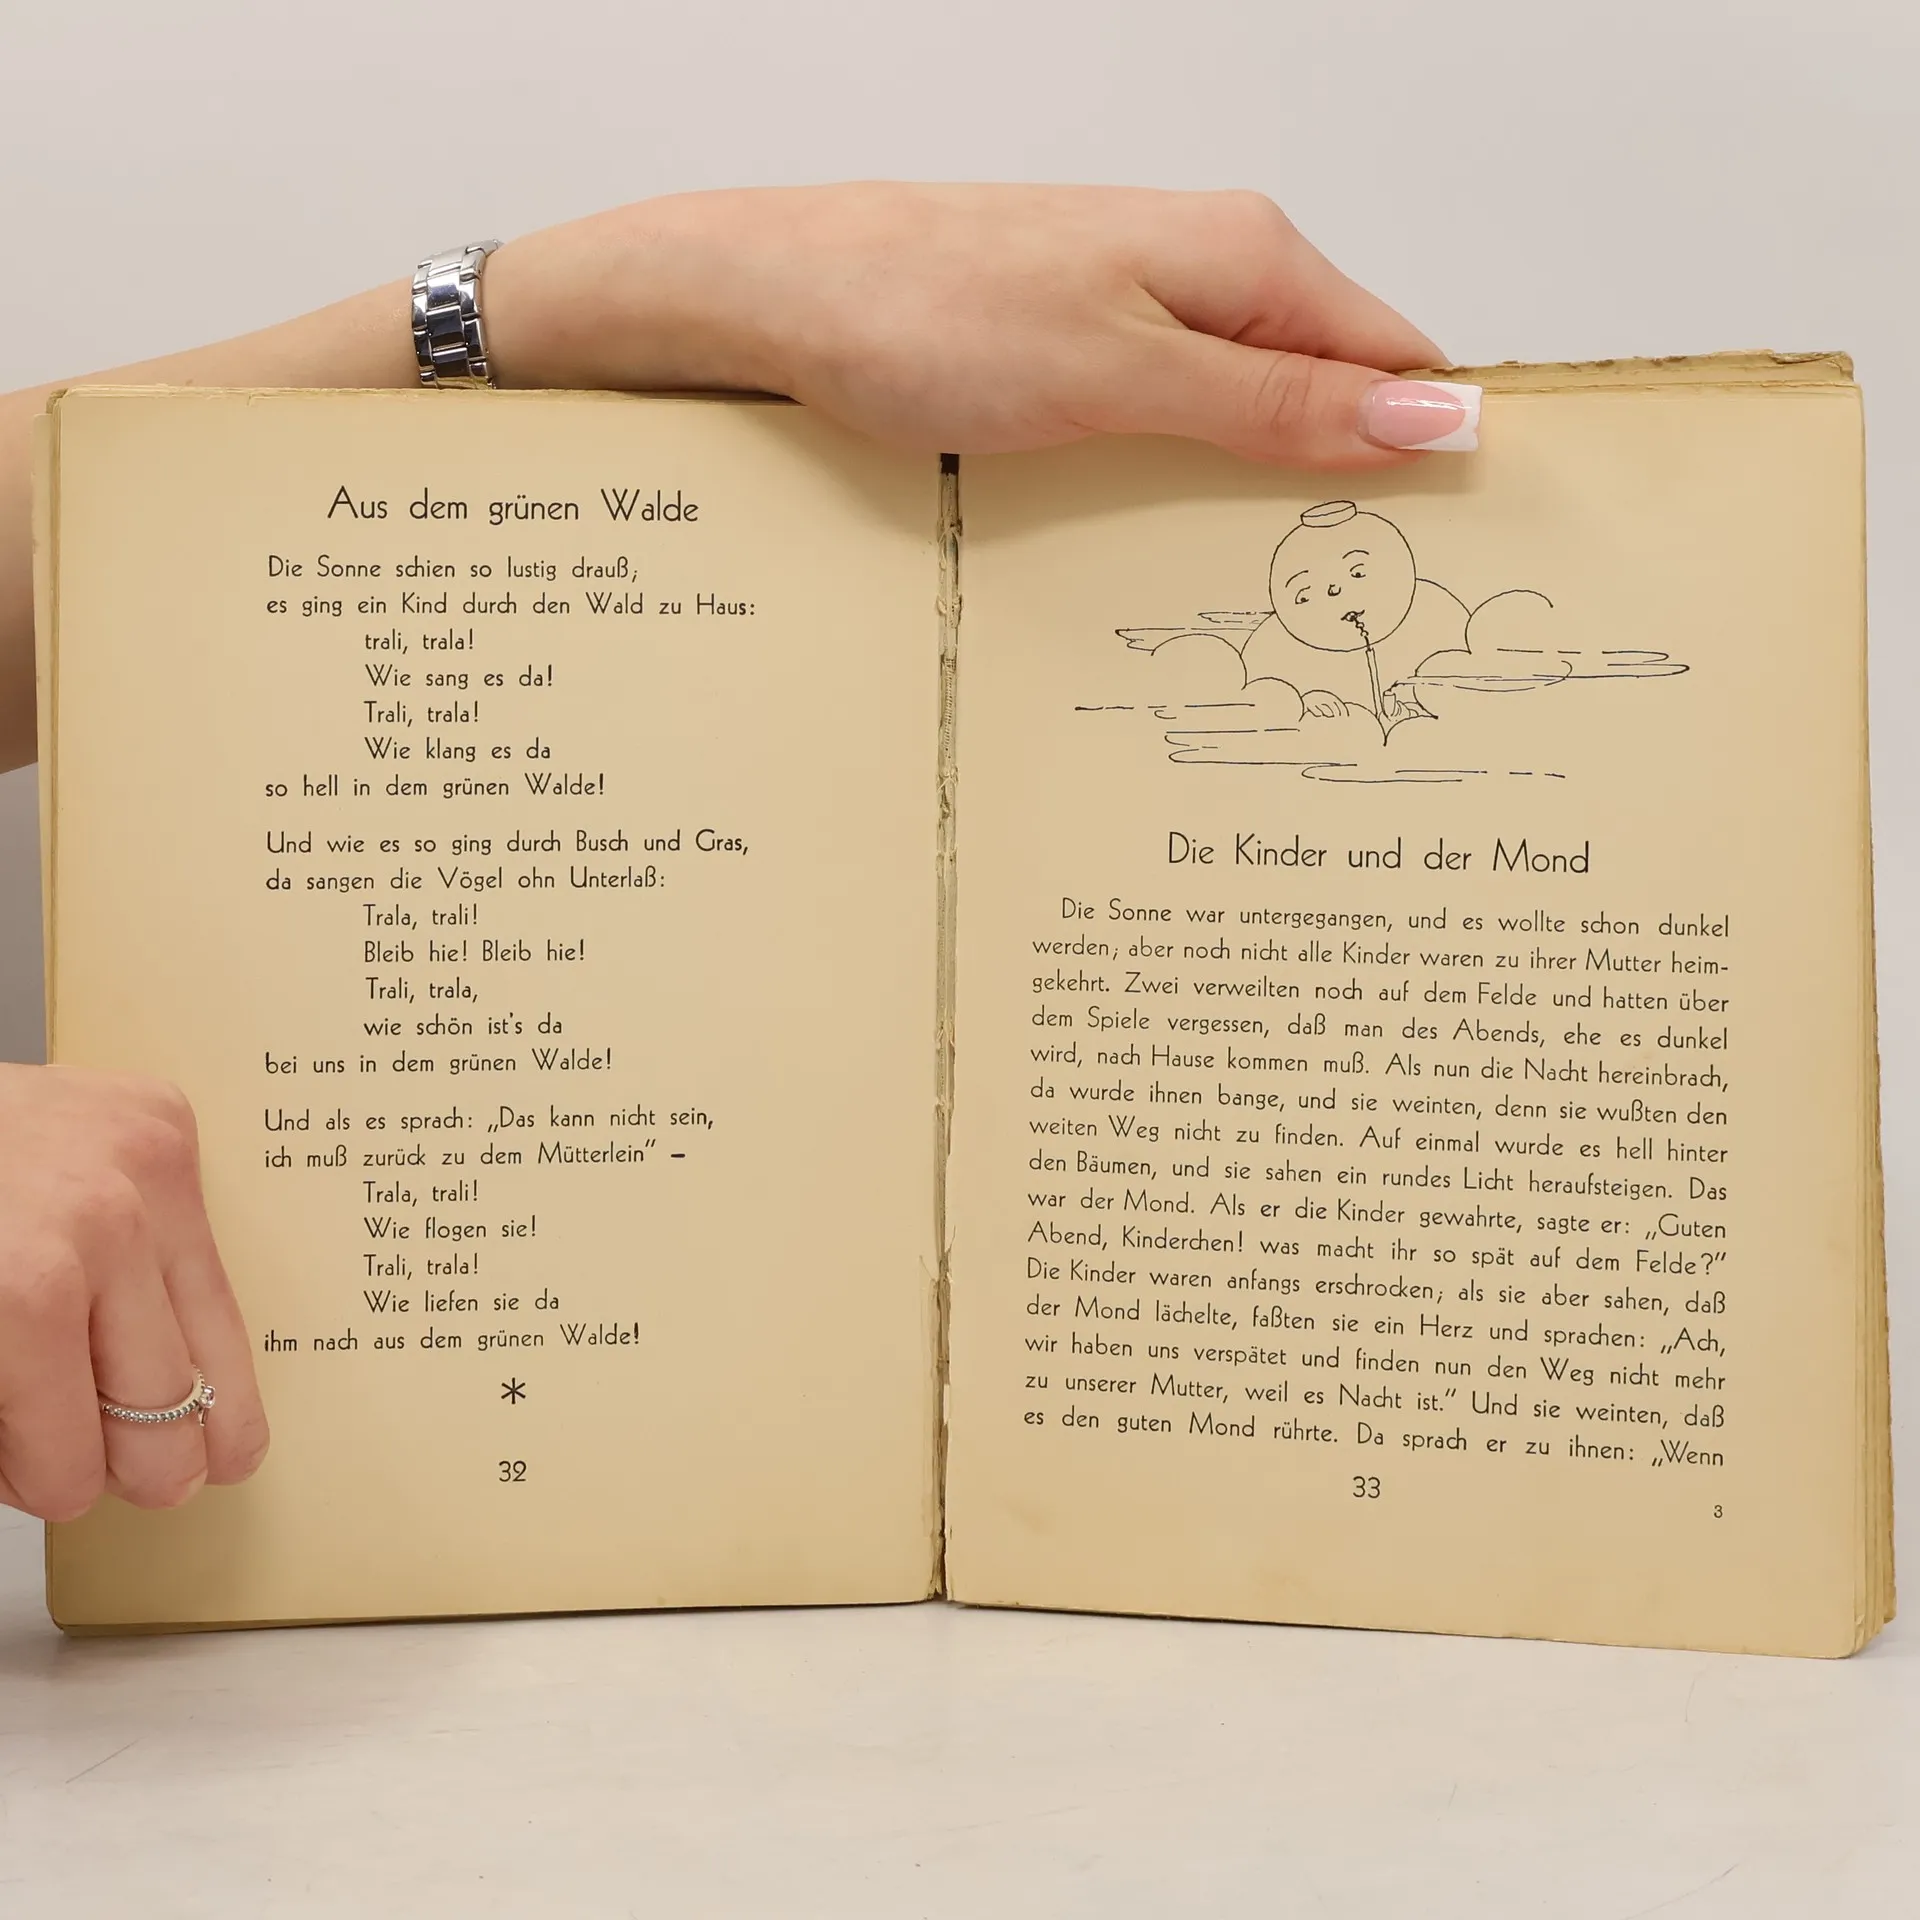 Aus dem grünen Walde
Die Sonne schien so lustig drauß;
es ging ein Kind durch den Wald zu Haus:
trali, trala!
Wie sang es da!
Trali, trala!
Wie klang es da
so hell in dem grünen Walde!
Und wie es so ging durch Busch und Gras,
da sangen die Vögel ohn Unterlaß:
Trala, trali!
Bleib hie! Bleib hie!
Trali, trala,
wie schön ist's da
bei uns in dem grünen Walde!
Und als es sprach: „Das kann nicht sein,
ich muß zurück zu dem Mütterlein" –
Trala, trali!
Wie flogen sie!
Trali, trala!
Wie liefen sie da
ihm nach aus dem grünen Walde!
*
32
Die Kinder und der Mond
Die Sonne war untergegangen, und es wollte schon dunkel
werden; aber noch nicht alle Kinder waren zu ihrer Mutter heim-
gekehrt. Zwei verweilten noch auf dem Felde und hatten über
dem Spiele vergessen, daß man des Abends, ehe es dunkel
wird, nach Hause kommen muß. Als nun die Nacht hereinbrach,
da wurde ihnen bange, und sie weinten, denn sie wußten den
weiten Weg nicht zu finden. Auf einmal wurde es hell hinter
den Bäumen, und sie sahen ein rundes Licht heraufsteigen. Das
war der Mond. Als er die Kinder gewahrte, sagte er: „Guten
Abend, Kinderchen! was macht ihr so spät auf dem Felde?"
Die Kinder waren anfangs erschrocken; als sie aber sahen, daß
der Mond lächelte, faßten sie ein Herz und sprachen: „Ach,
wir haben uns verspätet und finden nun den Weg nicht mehr
zu unserer Mutter, weil es Nacht ist." Und sie weinten, daß
es den guten Mond rührte. Da sprach er zu ihnen: „Wenn
33
3